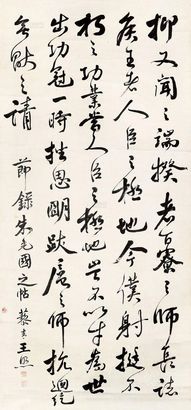 抑又聞之端揆者百寮之師長諸
侯王者人臣之極地今僕射挺不
朽之功業當人臣之極地豈不以才為世
出功冠一時挫思明跋扈之師抗迴紇
無厭之請
節錄 國之帖 王